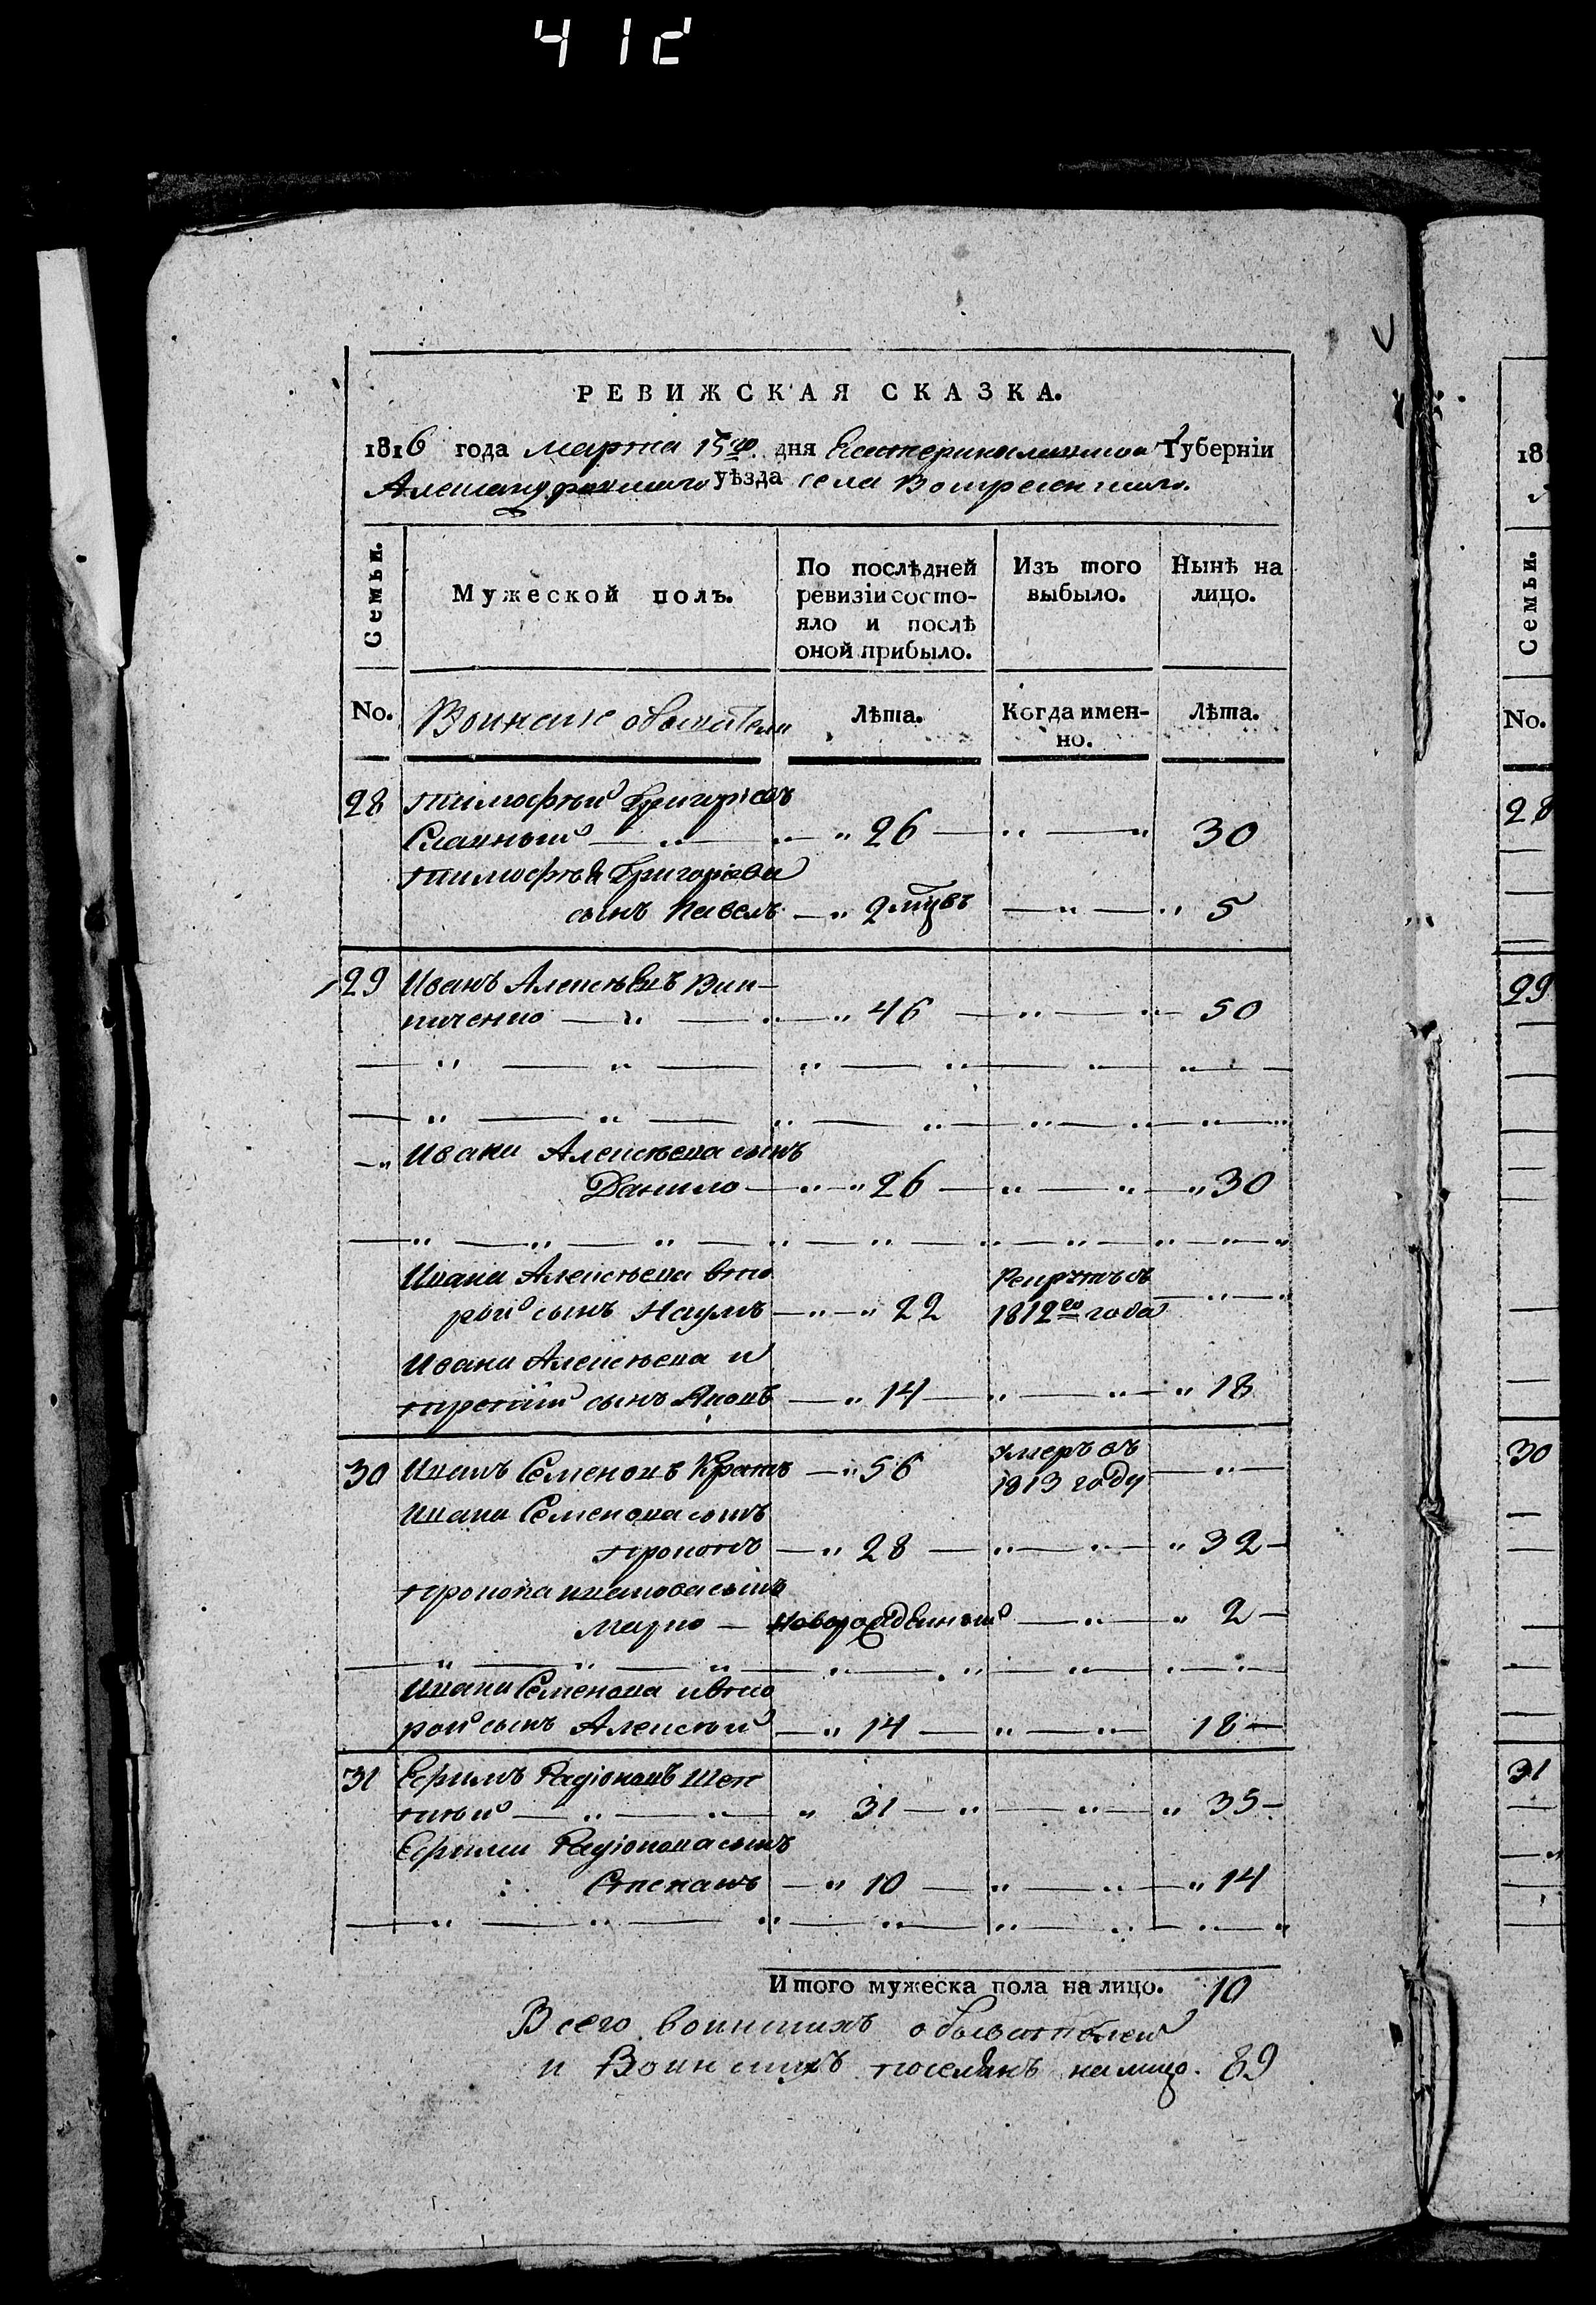 412
РЕВИЖСКАЯ СКАЗКА.
1816 года марта 15го дня Екатеринославской Губерніи
Александровского уѣзда села Воскресенского.
Семьи.
Мужеской полъ.
По послѣдней ревизіи состо-
яло и послѣ
оной прибыло.
Изъ того
выбыло.
Нынѣ на
лицо.
No. Воинские обыватели Лѣта. Когда имен-
но. Лѣта.
28 Тимофѣй Григорiевъ
26 30
Тимофѣя Григорiева
сынъ Павелъ 2 мцвъ 5
29 Иванъ Алексѣевъ Вин-
ниченко 46 50
Ивана Алексѣева сынъ
Данило 26 30
Ивана Алексѣева вто
рый сынъ Наумъ 22 Рекрутъ въ
1812го года
Ивана Алексѣева и
третiй сынъ Яковъ 14 18
30 Иванъ Семеновъ 56 Умеръ въ
1813 году
Ивана Семенова сынъ
Прокопъ 28 32
Прокопа Иванова сынъ
Марко Новорожденный 2
Ивана Семенова и вто
рой сынъ Алексѣй 14 18
31 Ефимъ Радiоновъ
31 35
Ефима Радiонова сынъ
Степанъ 10 14
Итого мужеска пола на лицо. 10
Всего воинскихъ обывателей
и Воинскихъ поселянъ на лицо. 89
18
Семьи.
No.
28
29
30
31